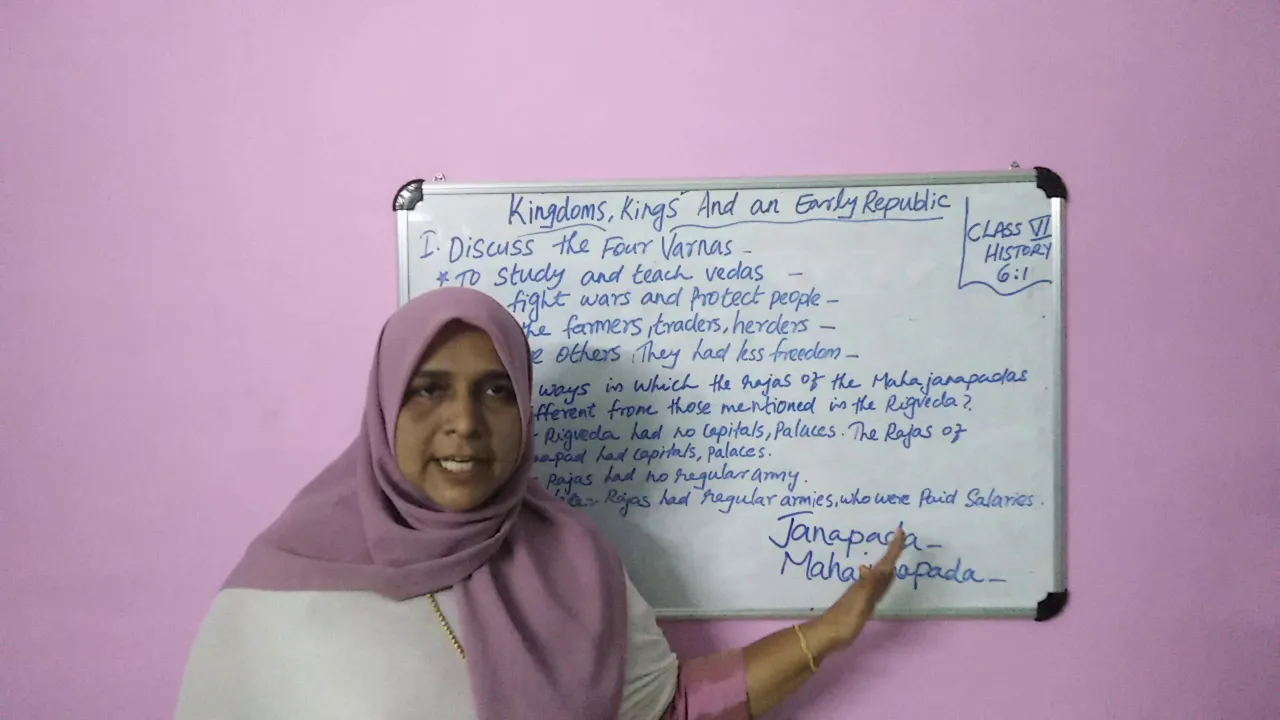 Kingdoms, Kings And an Early Republic
CLASS VI
HISTORY
6:1
I. Discuss the Four Varnas -
* To study and teach vedas -
fight wars and protect people -
the farmers, traders, herders -
others, They had less freedom -
ways in which the rajas of the Mahajanapadas
different from those mentioned in the Rigveda?
Rigveda had no capitals, Palaces. The Rajas of
had capitals, palaces.
Rajas had no regular army.
Rajas had regular armies, who were Paid Salaries.
Janapada -
Mahajanapada -